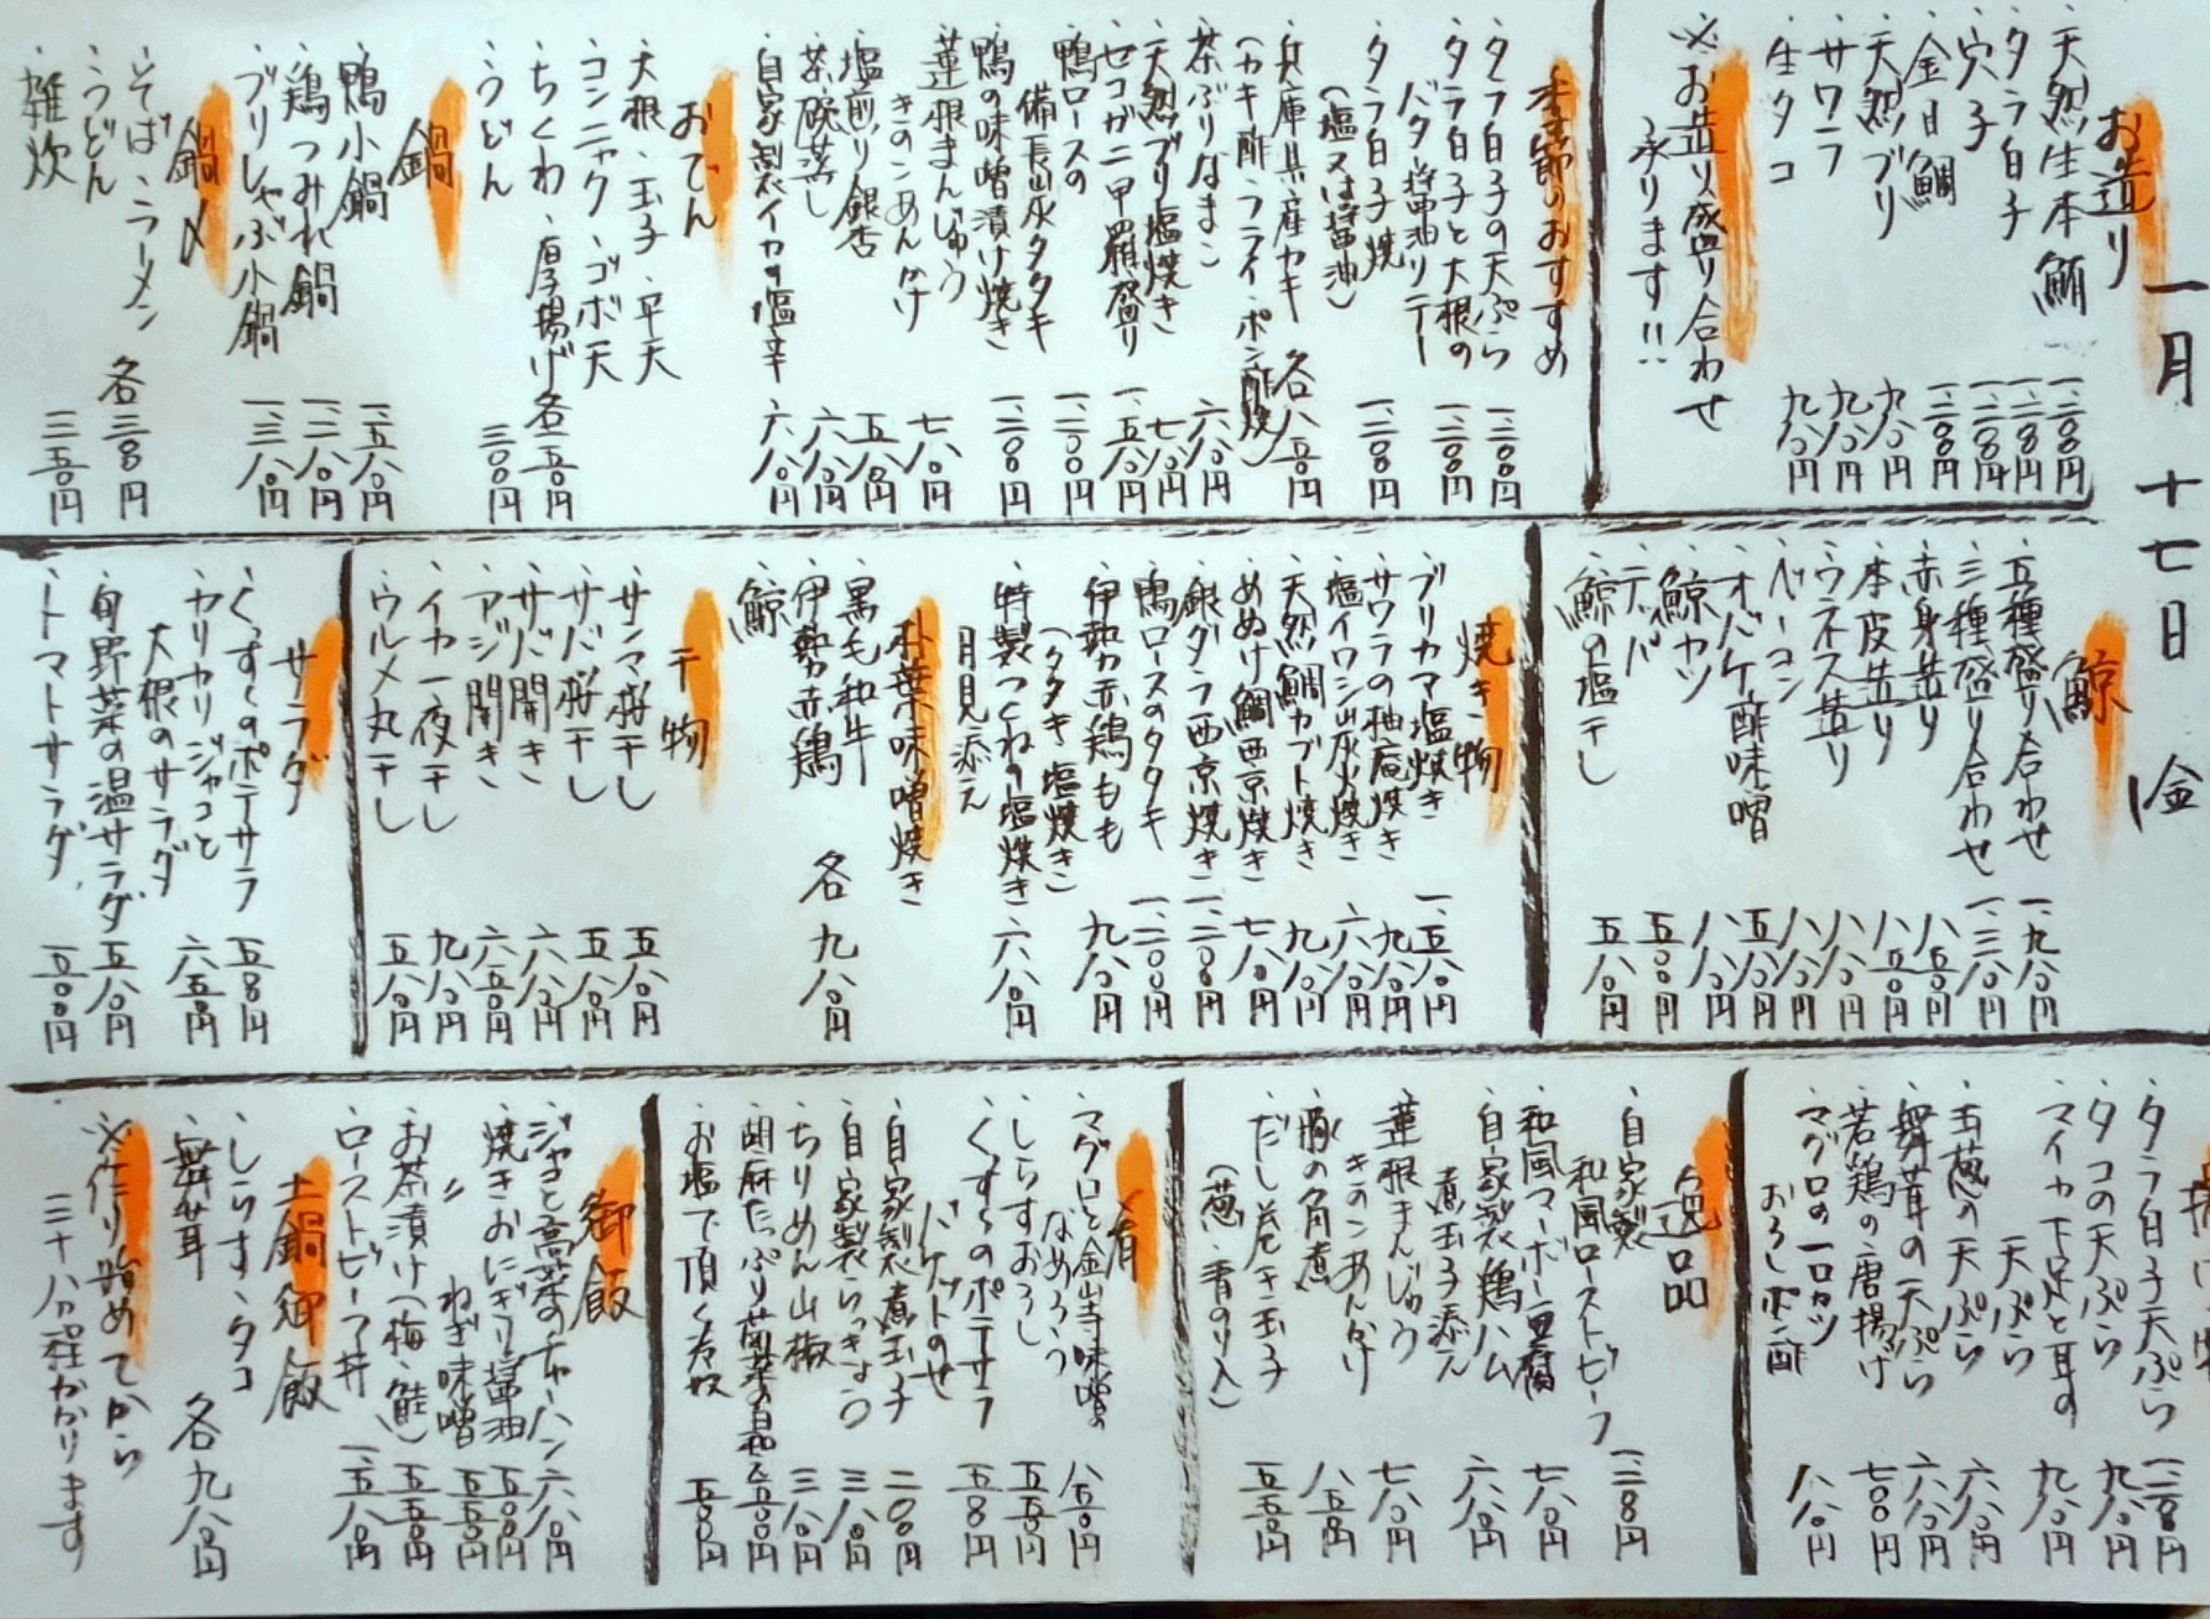 一月十七日(金)
お造り
・天然生本鮪 一、二〇〇円
・タラ白子 一、二〇〇円
・穴子 一、二〇〇円
・金目鯛 一、二〇〇円
・天然ブリ 九八〇円
・サワラ 九八〇円
・生タコ 九八〇円
※お造り盛り合わせ
承ります!!
季節のおすすめ
・タラ白子の天ぷら 一、二〇〇円
・タラ白子と大根の
バター醤油ソテー 一、二〇〇円
・タラ白子焼
(塩又は醤油) 一、二〇〇円
・兵庫県産カキ 各八五〇円
(カキ酢・フライ・ポン酢焼)
・茶ぶりなまこ 六八〇円
・天然ブリ塩焼き 七八〇円
・セコガニ甲羅盛り 一、五八〇円
・鴨ロースの
備長炭タタキ 一、二〇〇円
・鴨の味噌漬け焼き 一、二〇〇円
・蓮根まんじゅう
きのこあんかけ 七八〇円
・塩煎り銀杏 五八〇円
・茶碗蒸し 六八〇円
・自家製イカの塩辛 六八〇円
おでん
・大根・玉子・平天
・コンニャク・ゴボ天
・ちくわ・厚揚げ 各二五〇円
・うどん 三〇〇円
鍋
・鴨小鍋 一、五八〇円
・鶏つみれ鍋 一、二八〇円
・ブリしゃぶ小鍋 一、三八〇円
鍋〆
・そば・ラーメン
・うどん 各三〇〇円
・雑炊 三五〇円
鯨
・五種盛り合わせ 一、九八〇円
・三種盛り合わせ 一、三八〇円
・赤身造り 八五〇円
・本皮造り 八五〇円
・ウネス造り 八八〇円
・ベーコン 八八〇円
・オバケ酢味噌 五八〇円
・鯨カツ 八八〇円
・テッパ 五〇〇円
・鯨の塩干し 五八〇円
焼き物
・ブリカマ塩焼き 一、五八〇円
・サワラの柚庵焼き 九八〇円
・塩イワシ炭火焼き 六八〇円
・天然鯛カブト焼き 九八〇円
・めぬけ鯛西京焼き 七八〇円
・銀ダラ西京焼き 一、二〇〇円
・鴨ロースのタタキ 一、二〇〇円
・伊勢赤鶏もも
(タタキ・塩焼き) 九八〇円
・特製つくねの塩焼き 六八〇円
月見添え
朴葉味噌焼き
・黒毛和牛
・伊勢赤鶏 各九八〇円
・鯨
干物
・サンマ桜干し 五八〇円
・サバ桜干し 五八〇円
・サバ開き 六八〇円
・アジ開き 六五〇円
・イカ一夜干し 九八〇円
・ウルメ丸干し 五八〇円
サラダ
・くずくずのポテサラ 五〇〇円
・カリカリジャコと
大根のサラダ 六五〇円
・旬野菜の温サラダ 五八〇円
・トマトサラダ 五〇〇円
揚げ物
・タラ白子天ぷら 一、二〇〇円
・タコの天ぷら 九八〇円
・マイカ下足と耳の
天ぷら 九八〇円
・玉葱の天ぷら 六八〇円
・舞茸の天ぷら 六八〇円
・若鶏の唐揚げ 七〇〇円
・マグロの一口カツ
おろしポン酢 八八〇円
逸品
・自家製
和風ローストビーフ 一、二〇〇円
・和風マーボー豆腐 七八〇円
・自家製鶏ハム
煮玉子添え 六八〇円
・蓮根まんじゅう
きのこあんかけ 七八〇円
・豚の角煮 八五〇円
・だし巻き玉子
(葱・青のり入) 五五〇円
肴
・マグロと金山寺味噌の
なめろう 八五〇円
・しらすおろし 五五〇円
・くずくずのポテサラ
バゲットのせ 五〇〇円
・自家製煮玉子 二〇〇円
・自家製らっきょう 三八〇円
・ちりめん山椒 三八〇円
・胡麻たっぷり菊菜の 五〇〇円
・お塩で頂く冷奴 五〇〇円
御飯
・ジャコと高菜のチャーハン 六八〇円
・焼きおにぎり醤油 五〇〇円
〃 ねぎ味噌 五五〇円
・お茶漬け(梅・鮭) 五五〇円
・ローストビーフ丼 一、五八〇円
土鍋御飯
・しらす・タコ
・舞茸 各九八〇円
※作り始めてから
三十八分程かかります